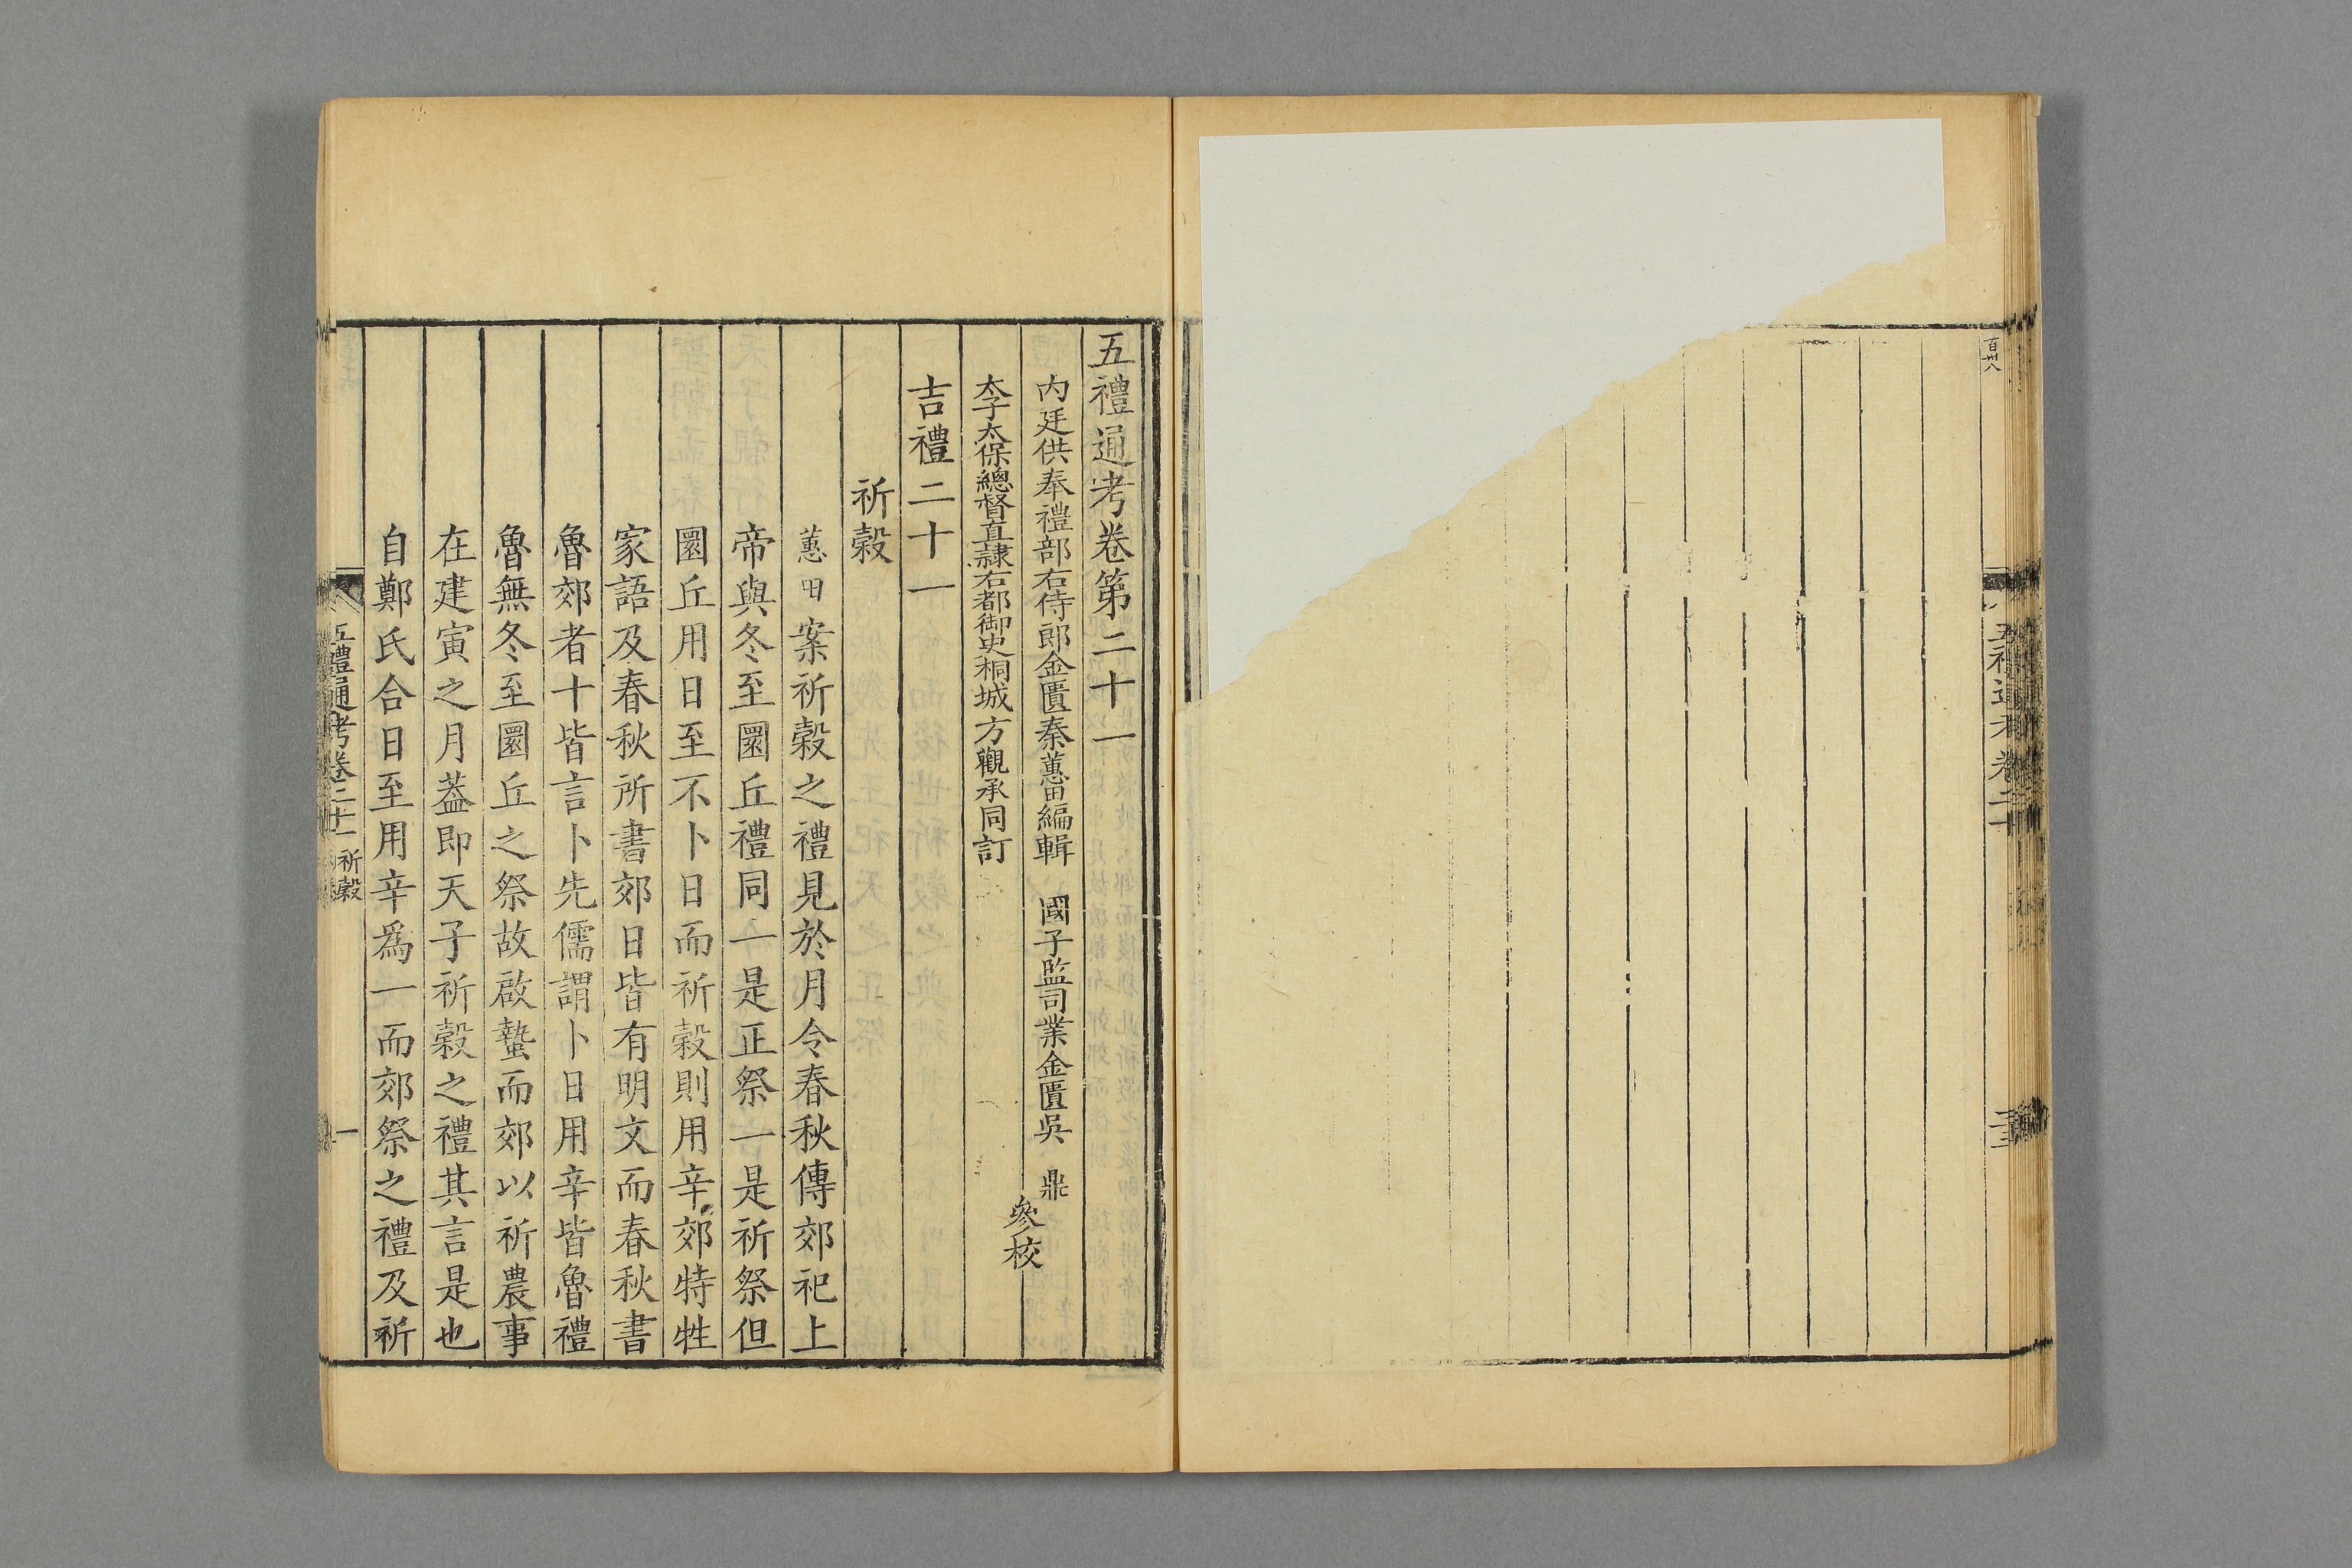 百卅八
五禮通考卷二十
五禮通考卷第二十一
內廷供奉禮部右侍郎金匱秦蕙田編輯　國子監司業金匱吳　鼎
太子太保總督直隸右都御史桐城方觀承同訂
參校
吉禮二十一
祈穀
蕙田案祈穀之禮見於月令春秋傳郊祀上
帝與冬至圜丘禮同一是正祭一是祈祭但
圜丘用日至不卜日而祈穀則用辛郊特牲
家語及春秋所書郊日皆有明文而春秋書
魯郊者十皆言卜先儒謂卜日用辛皆魯禮
魯無冬至圜丘之祭故啟蟄而郊以祈農事
在建寅之月葢即天子祈穀之禮其言是也
自鄭氏合日至用辛爲一而郊祭之禮及祈
五禮通考卷二十一　祈穀
一